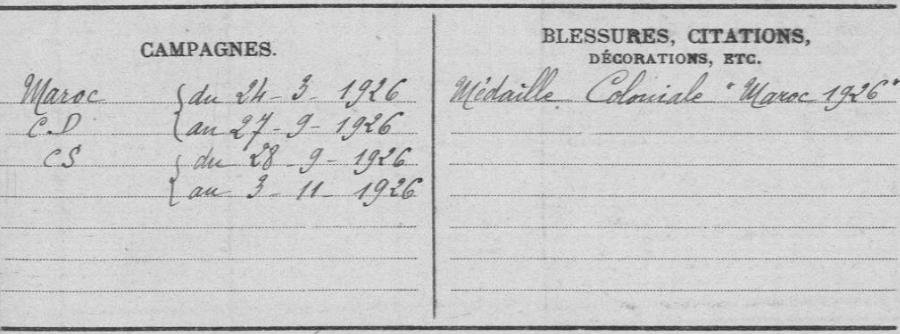 CAMPAGNES.
Maroc { du 24 - 3 - 1926
C.D { au 27 - 9 - 1926
CS { du 28 - 9 - 1926
{ au 3 - 11 - 1926
BLESSURES, CITATIONS,
DÉCORATIONS, ETC.
Médaille Coloniale "Maroc 1926"